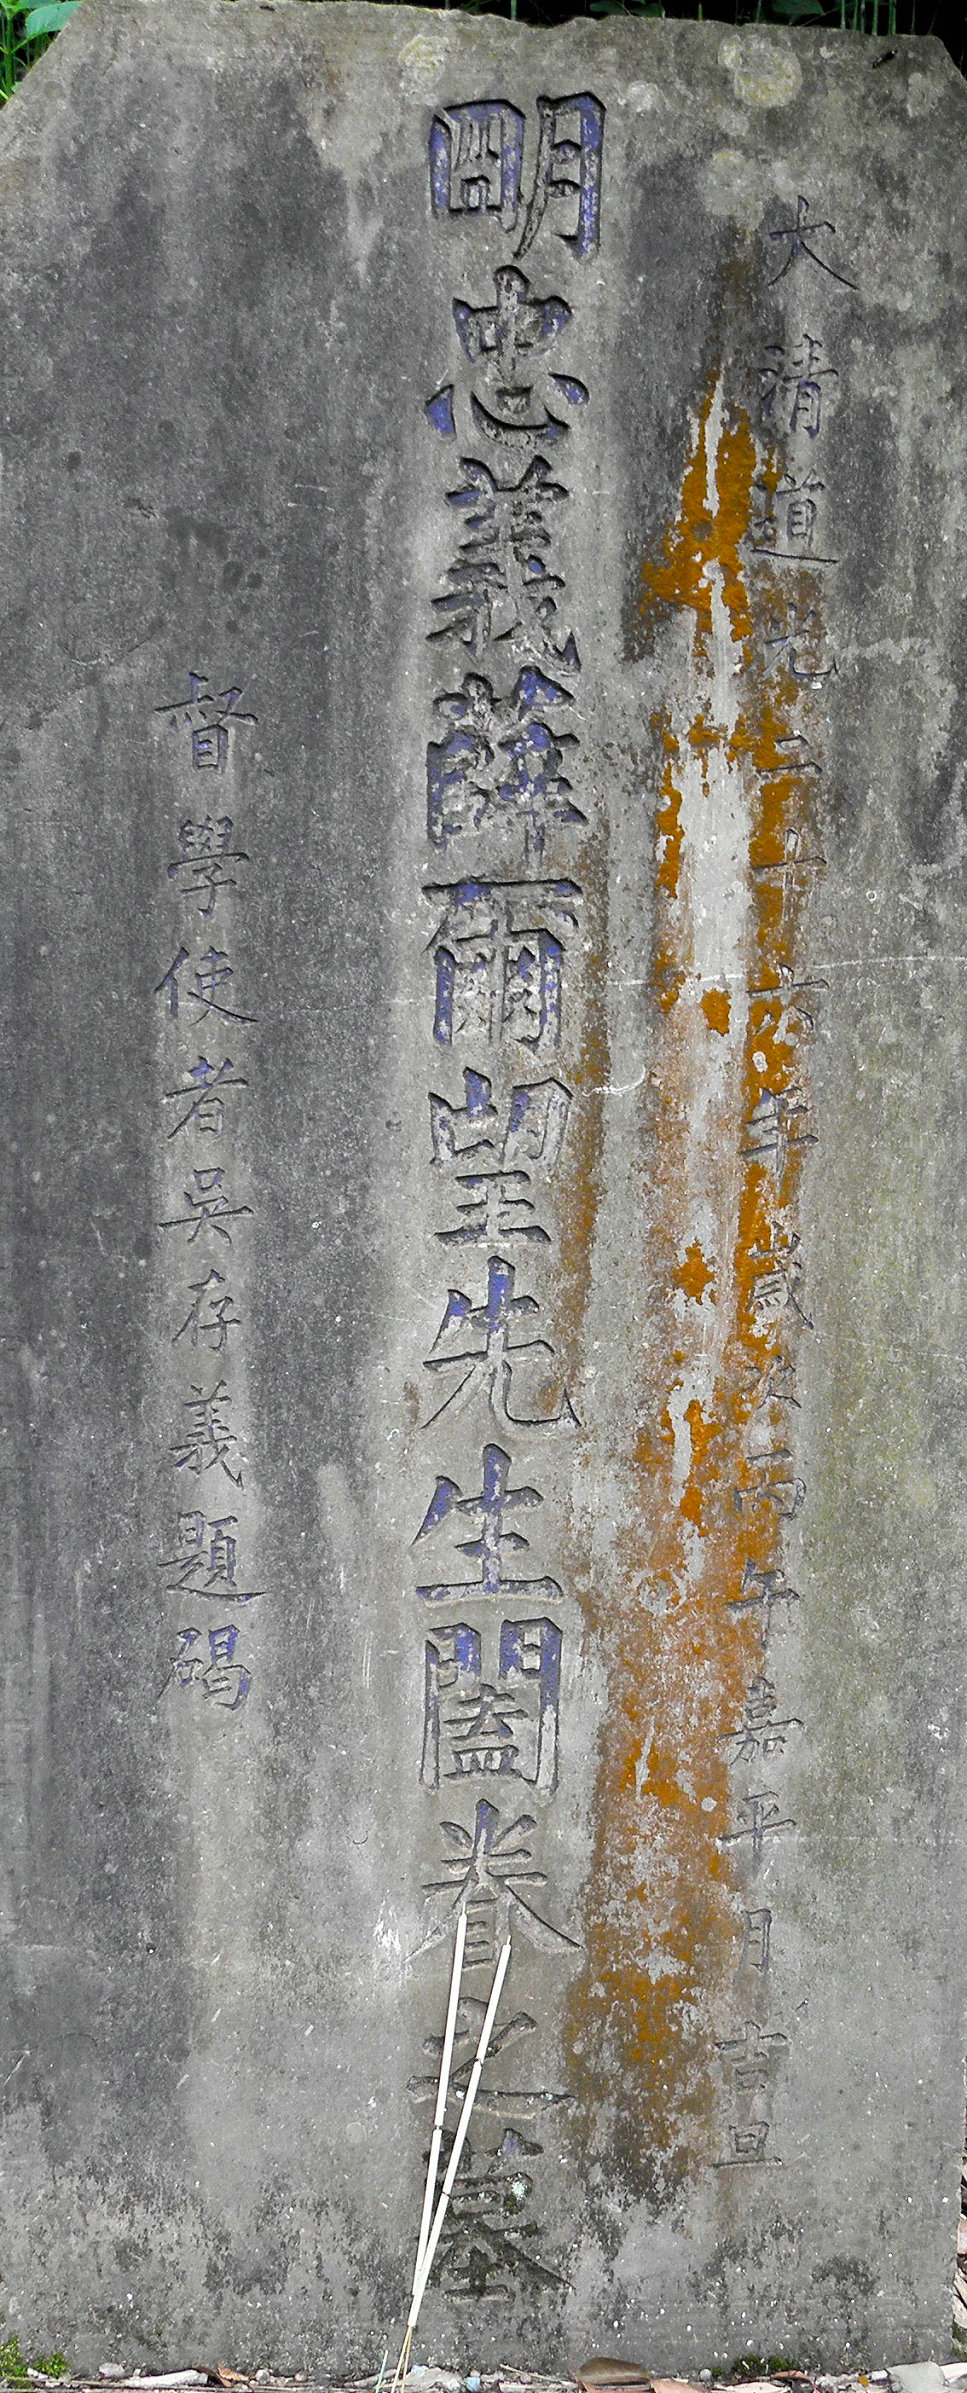 大清道光二十六年歲次丙午嘉平月吉旦
明忠義薛爾望先生闔眷之墓
督學使者吳存義題碣